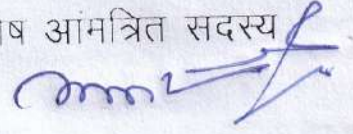 ष आमंत्रित सदस्य